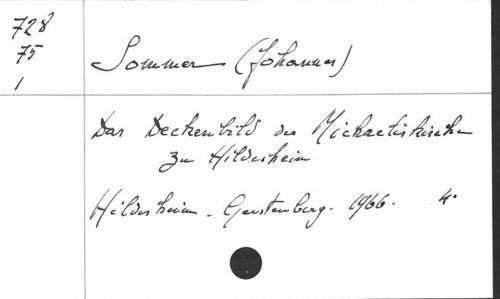 728
75
1
Sommer (Johannes)
Das Deckenbild der Michaeliskirche
zu Hildesheim
Hildesheim. Gerstenberg. 1966. 4°